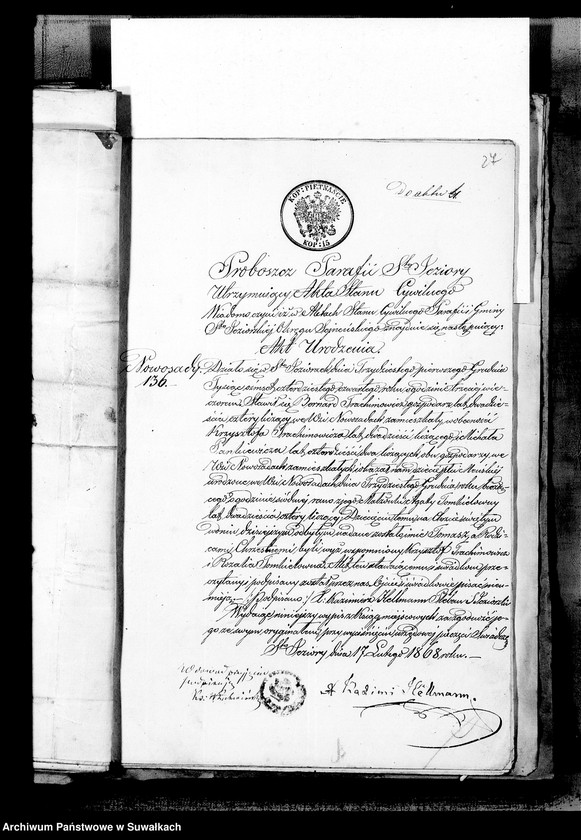 27
Do aktu 4
KOP: PIETNAŚCIE
KOP: 15
Proboszcz Parafii Stey Jeziory
Utrzymujący Akta Stanu Cywilnego
Wiadomo czyni iż w Aktach Stanu Cywilnego Parafii i Gminy
Sto Jeziorskiej Okręgu Sejneńskiego znajduje się następujący:
Akt Urodzenia
Nowosady.
136.
Działo się w Stych Jeziorach dnia Trzydziestego pierwszego Grudnia
Tysiąc ośmset czterdziestego czwartego roku o godzinie trzeciej wie-
czorem. Stawił się Bernard Trachimowicz gospodarz lat dwadzie-
ścia cztery liczący we Wsi Nowosadach zamieszkały w obecności
Krzysztofa Trachimowicza lat dwadzieścia liczącego i Michała
lat czterdzieści dwa liczących, obu gospodarzy we
Wsi Nowosadach zamieszkałych i okazał nam dziecię płci Męskiej
urodzone we Wsi Nowosadach dnia Trzydziestego Grudnia roku bieżą-
cego o godzinie siódmej rano z jego Małżonki Agaty
lat dwadzieścia cztery liczącej. Dziecięciu temu na Chrzcie świętym
w dniu dzisiejszym odbytym nadane zostało imie Tomasz, a Rodzi-
cami Chrzestnemi byli wyż wspomniony Krzysztof Trachimowicz
i Rozalia. Akt ten stawającemu i świadkom prze-
czytany i podpisany został przez nas, Ojciec i świadkowie pisać nieu-
mieją. (Podpisano) X. Kazimierz Hellmann Pleban S. Jeziorski
Wydając niniejszy wypis z Ksiąg miejscowych za zgodność je-
go ze swym oryginałem, przy wyciśnięciu urzędowej pieczęci
Ste Jeziory dnia 17 Lutego 1868 roku.
X Kazimi Hellmann.
Archiwum Państwowe w Suwałkach